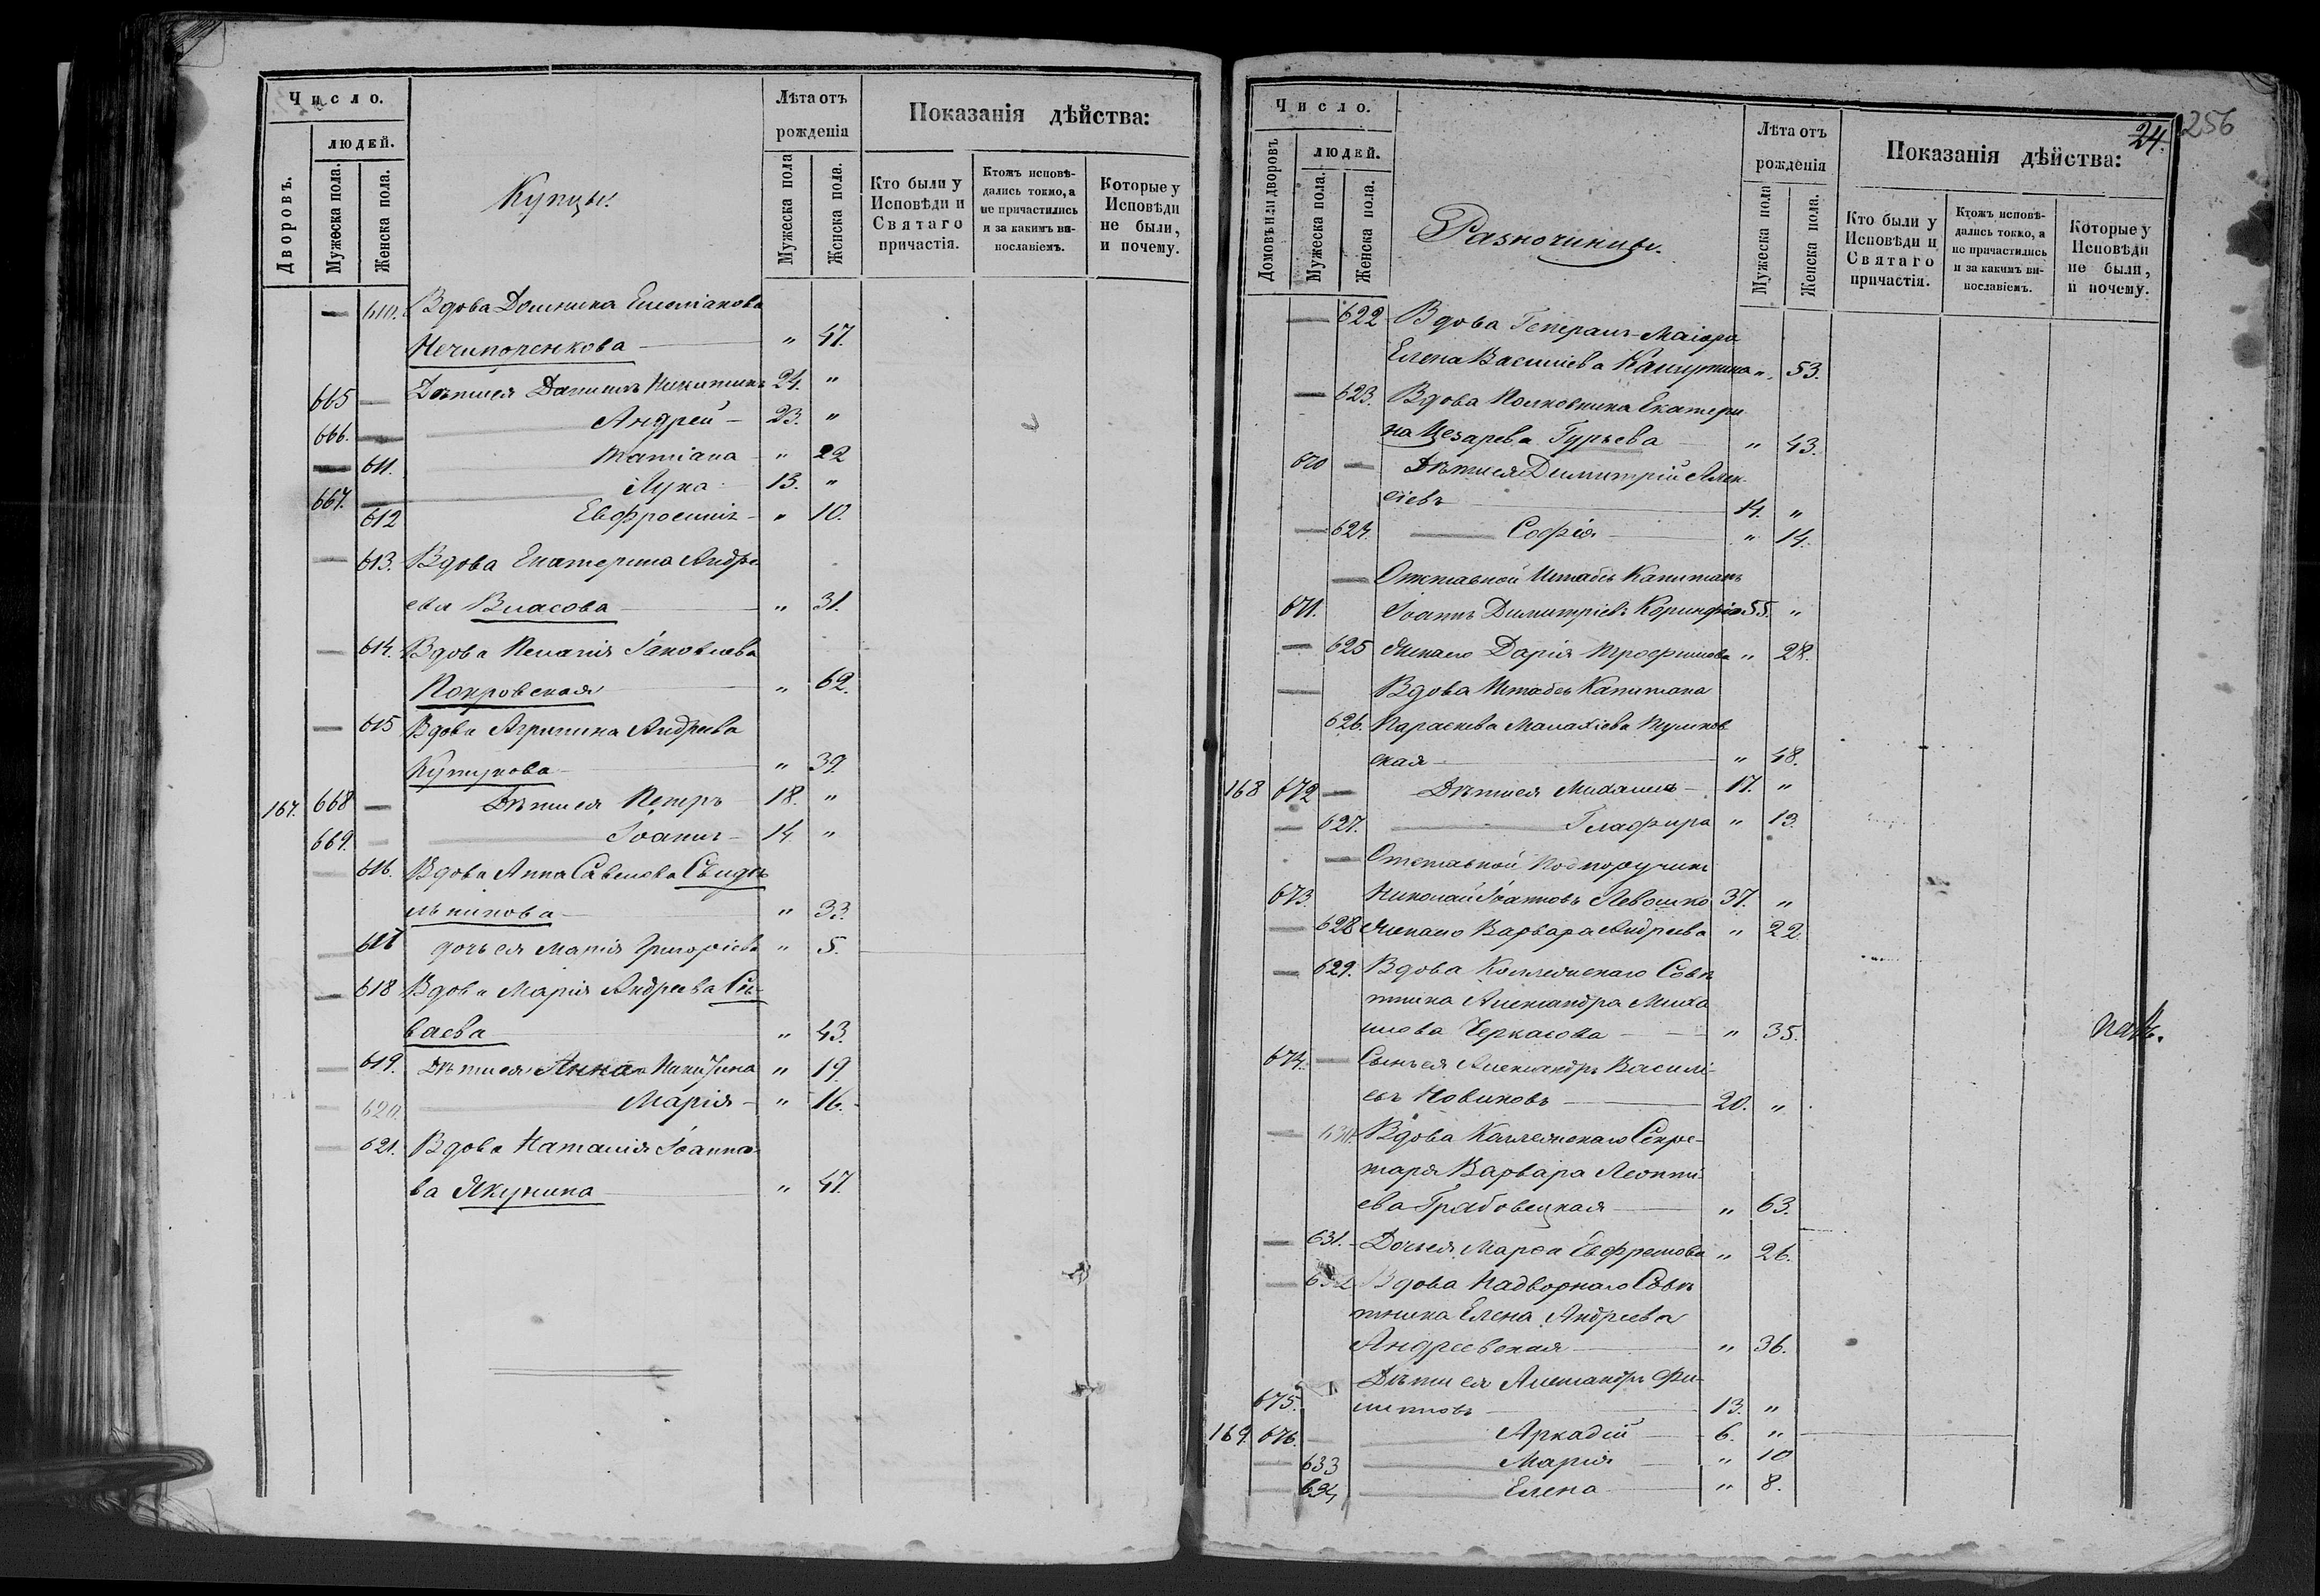 Число.
людей.
Дворовъ.
Мужеска пола.
Женска пола.
Купцы.
Лѣта отъ
рожденія
Мужеска пола
Женска пола.
Показанія дѣйства:
Кто были у
Исповѣди и
Святаго
причастія.
Ктожъ исповѣ-
дались токмо, а
не причастились
и за какимъ ви-
нословіемъ.
Которые у
Исповѣди
не были,
и почему.
— 610. Вдова Домника Емеліанова
Нечипоренкова — " 47.
665 — Дѣти ея Даніилъ Никитинъ 24. "
666. — Андрей — 23. "
— 611. Татіана — " 22
667. — Лука — 13. "
612 Евфросинія — " 10.
— 613. Вдова Екатерина Андре
ева Власова — " 31.
— 614. Вдова Пелагія Іаковлева
Покровская — " 62.
— 615 Вдова Агрипина Андреева
— " 39.
167. 668 — Дѣти ея Петръ 18. "
669. — Іоаннъ — 14. "
— 616. Вдова Анна Савелова Свидѣ
льникова — " 33.
— дочь ея Марія Григоріева " 5.
— 618 Вдова Марія Андреева
ваева — " 43.
— 619. Дѣти ея Анна Никитина " 19.
— 620. Марія — " 16.
— 621. Вдова Наталія Іоанно-
ва Якунина — " 47.
24.
256
Число.
людей.
Домовъ или дворовъ
Мужеска пола.
Женска пола.
Разночинцы.
Лѣта отъ
рожденія
Мужеска пола
Женска пола.
Показанія дѣйства:
Кто были у
Исповѣди и
Святаго
причастія.
Ктожъ исповѣ-
дались токмо, а
не причастились
и за какимъ ви-
нословіемъ.
Которые у
Исповѣди
не были,
и почему.
— 622 Вдова Генералъ-Маіора
Елена Василіева " 53.
— 623. Вдова Полковника Екатери
на Цезарева Гурьева — " 43.
670 — Дѣти ея Димитрій Алек-
сіевъ — 14. "
— 624. — Софія — " 14.
— Отставной Штабсъ Капитанъ
671. Іоаннъ Димитріевъ 55. "
— 625 Жена его Дарія Трофимова " 28.
— Вдова Штабсъ Капитана
626. Параскева Малахіева
ская — " 48.
168 672 — Дѣти ея Михаилъ — 17. "
— 627. — Глафира " 13.
— Отставной Подпоручикъ
673. Николай Іоанновъ Левошко 37. "
— 628 Жена его Варвара Андреева " 22.
— 629. Вдова Коллежскаго Совѣ
тника Александра Миха
илова Черкасова — " 35.
674. — Сынъ ея Александръ Василі-
евъ Новиковъ — 20. "
— 630. Вдова Коллежскаго Секре-
таря Варвара Леонті-
ева Грабовецкая — " 63.
— 631. Дочь ея Марѳа Евфремова " 26.
— 632 Вдова Надворнаго Совѣ
тника Елена Андреева
Андреевская — " 36.
Дѣти ея Александръ Фи-
675. липповъ — 13. "
169. 676. — Аркадій — 6. "
— 633 — Марія — " 10
— 634 — Елена — " 8.